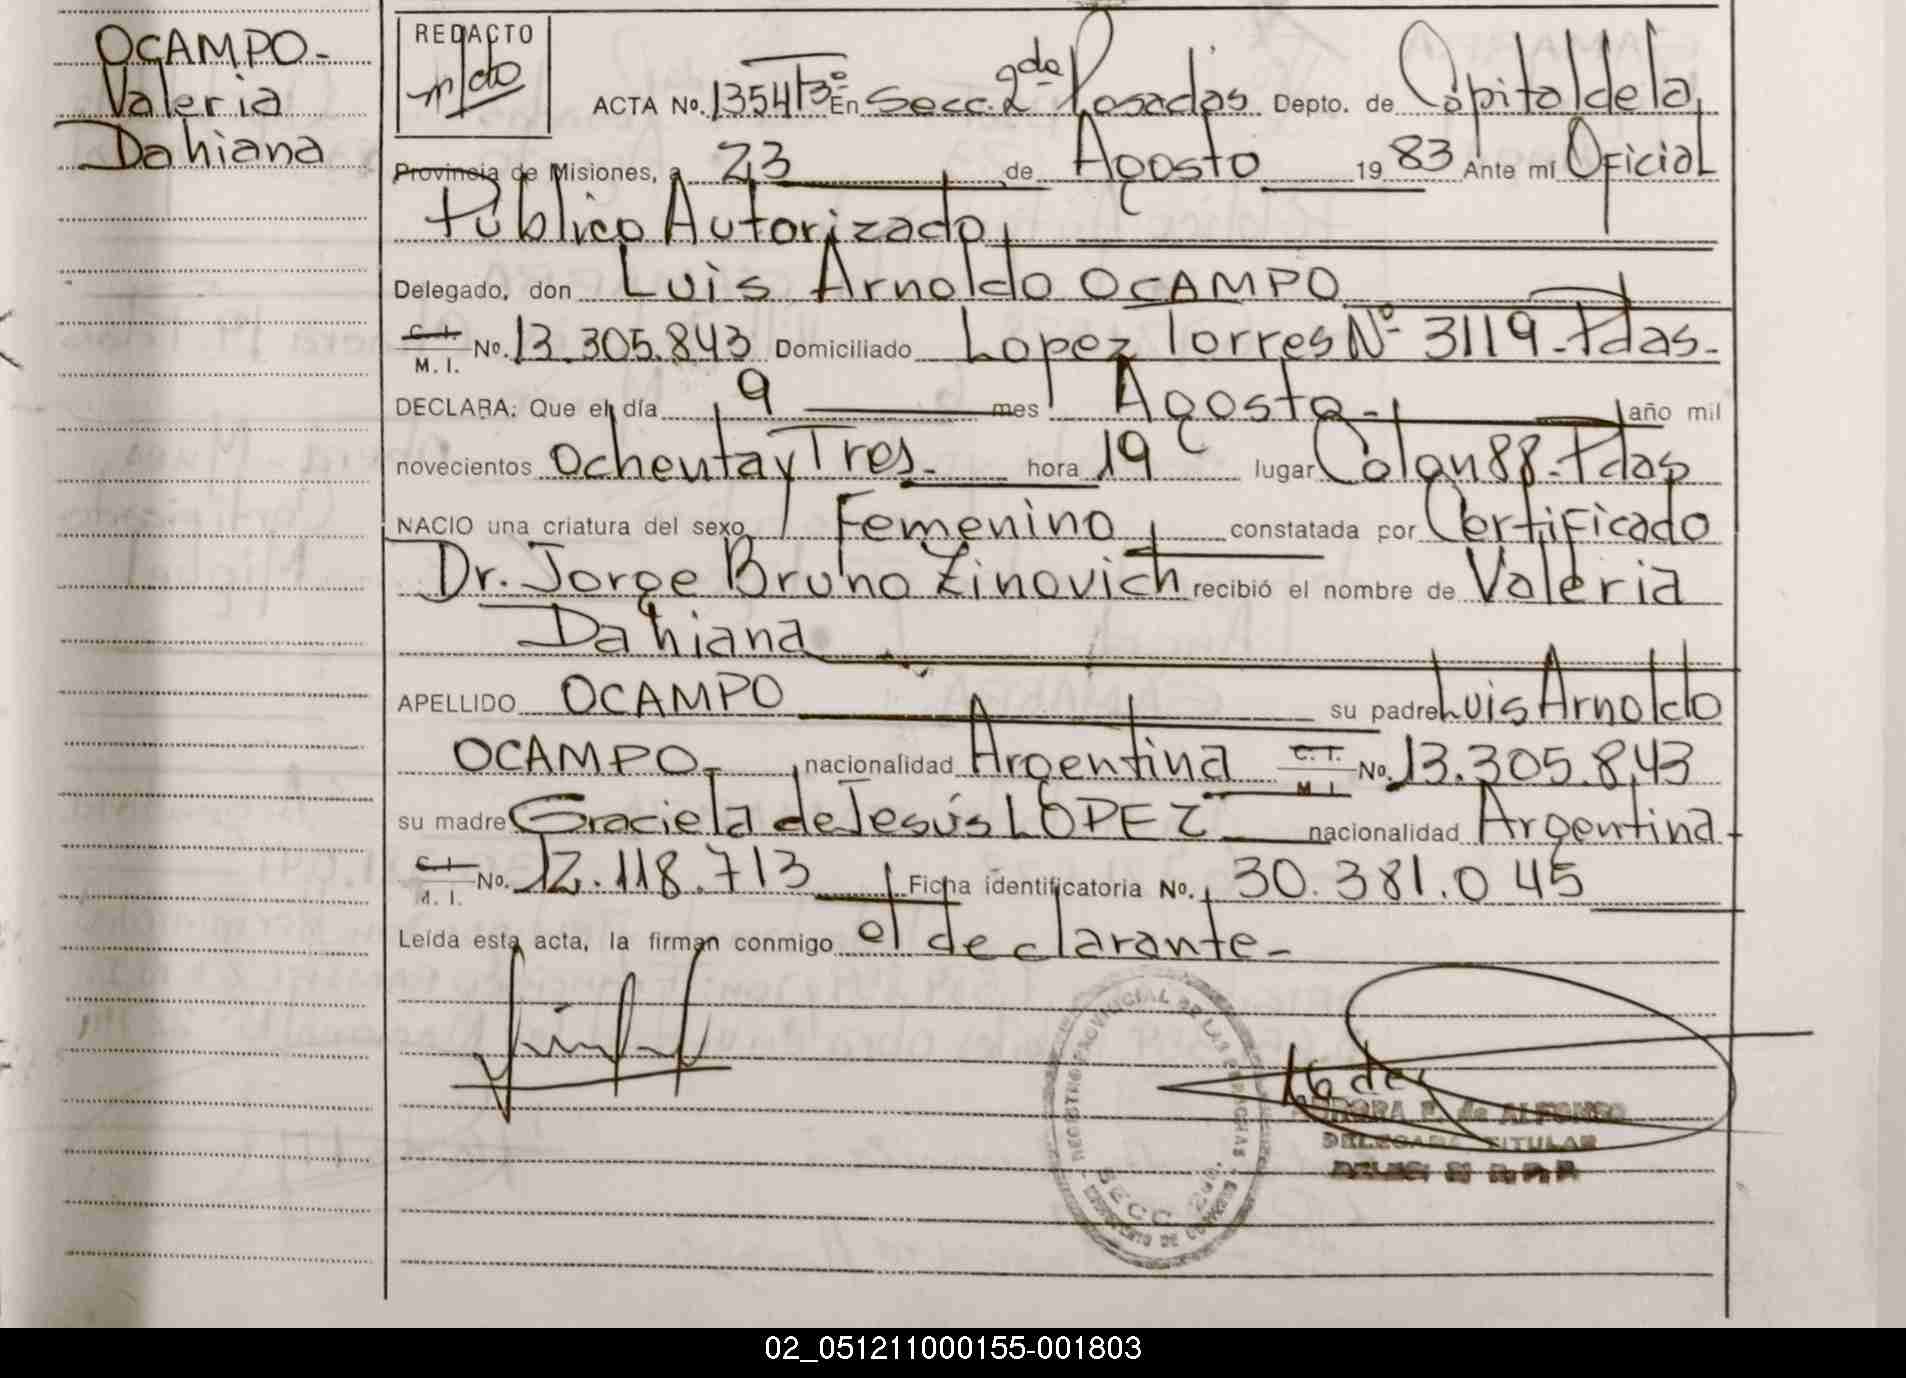 OCAMPO-
Valeria
Dahiana
REDACTO
ACTA No. 1354 T3º En Secc. 2da Posadas Depto. de Capital de la
Provincia de Misiones, a 23 de Agosto 1983 Ante mí Oficial
Público Autorizado
Delegado, don Luis Arnoldo OCAMPO
C.I. / M.I. No. 13.305.843 Domiciliado Lopez Torres Nº 3119-Pdas-
DECLARA: Que el día 9 mes Agosto- año mil
novecientos ochenta y Tres- hora 19 lugar Colon 88-Pdas
NACIO una criatura del sexo Femenino constatada por Certificado
Dr. Jorge Bruno Zinovich recibió el nombre de Valeria
Dahiana
APELLIDO OCAMPO su padre Luis Arnoldo
OCAMPO- nacionalidad Argentina C.I. / M.I. No. 13.305.843
su madre Graciela de Jesús LOPEZ nacionalidad Argentina
C.I. / M.I. No. 12.118.713 Ficha identificatoria No. 30.381.045
Leída esta acta, la firman conmigo el declarante-
REGISTRO PROVINCIAL DE LAS PERSONAS
SECC. 2da
de ALFONSO
DELEGADA TITULAR
02_051211000155-001803